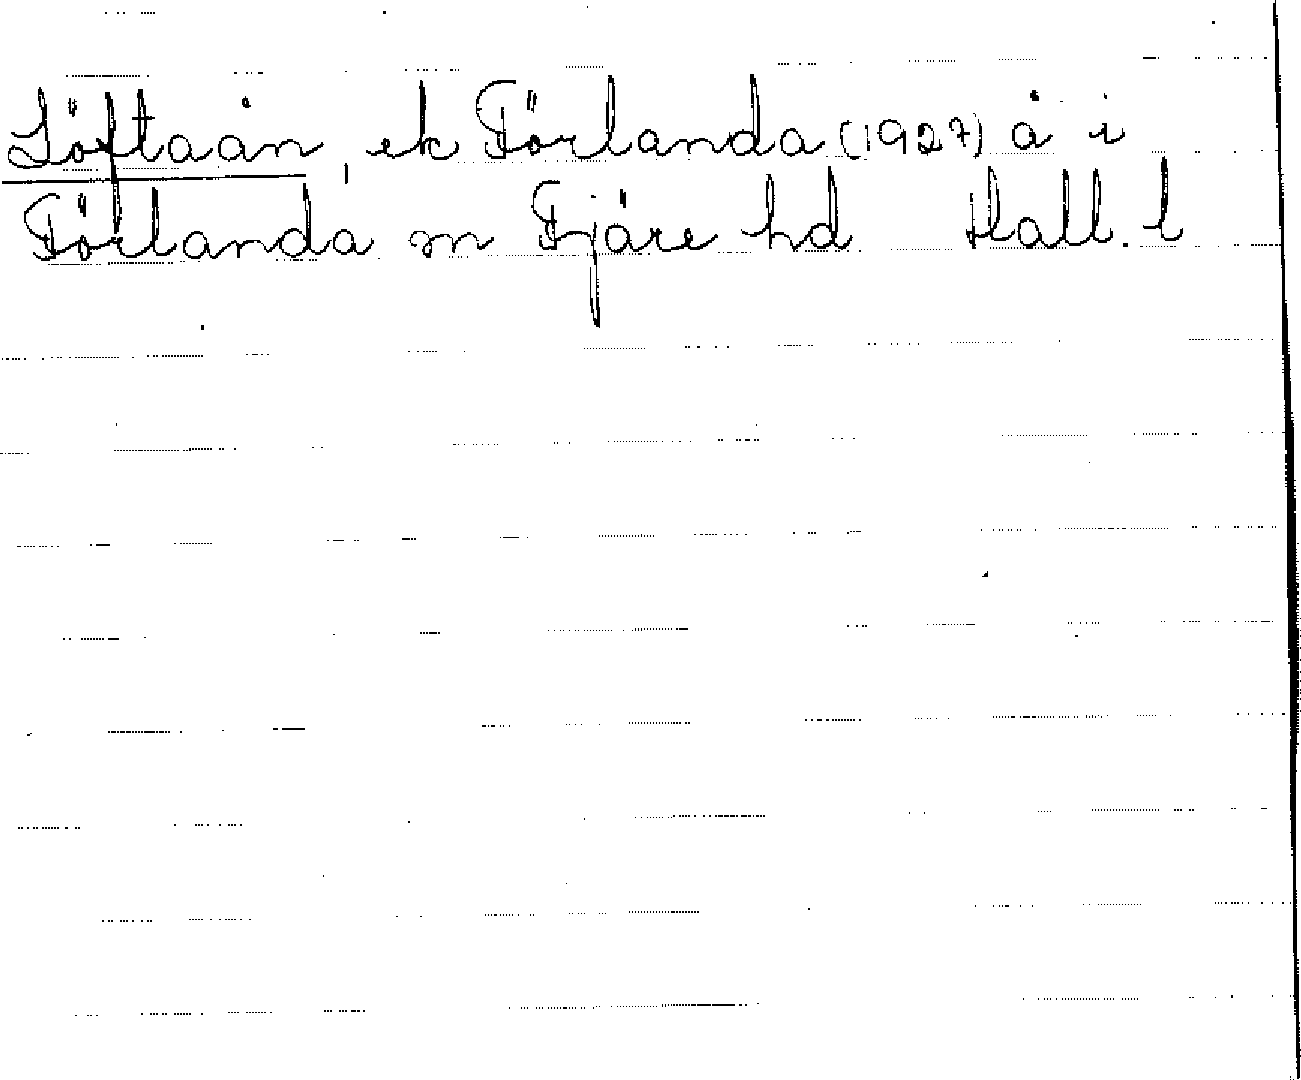 Löftaån, ek Förlanda (1927) å i
Förlanda sn Fjäre hd Hall. l